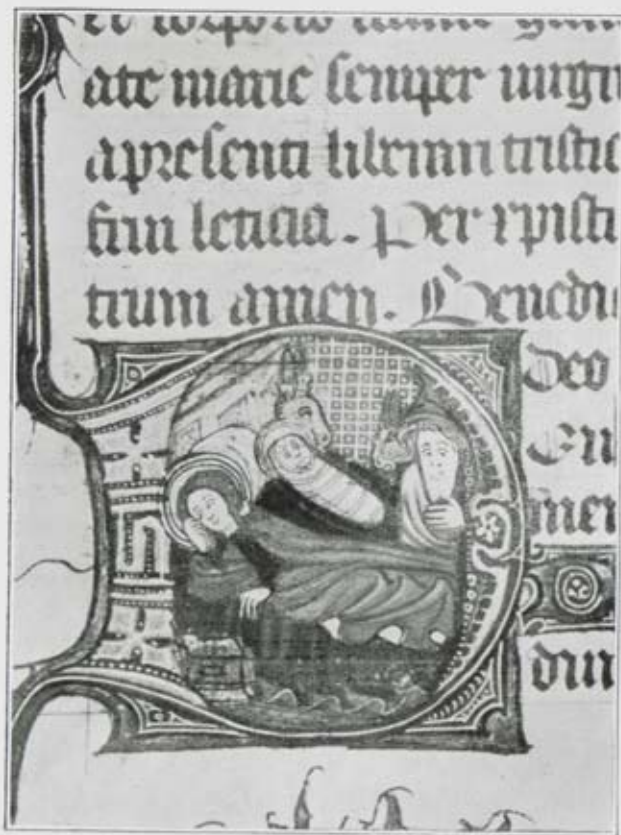 et corporis
ate marie semper uirgi
apresenti liberari tristic
frui leticia. Per xpisti
trium amen. Benedi
deo
mei
dm